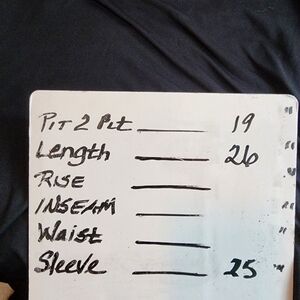 Pit 2 Pit ——— 19 "
Length ——— 26 "
RISE ——— "
INSEAM ——— "
Waist ——— "
Sleeve ——— 25 "